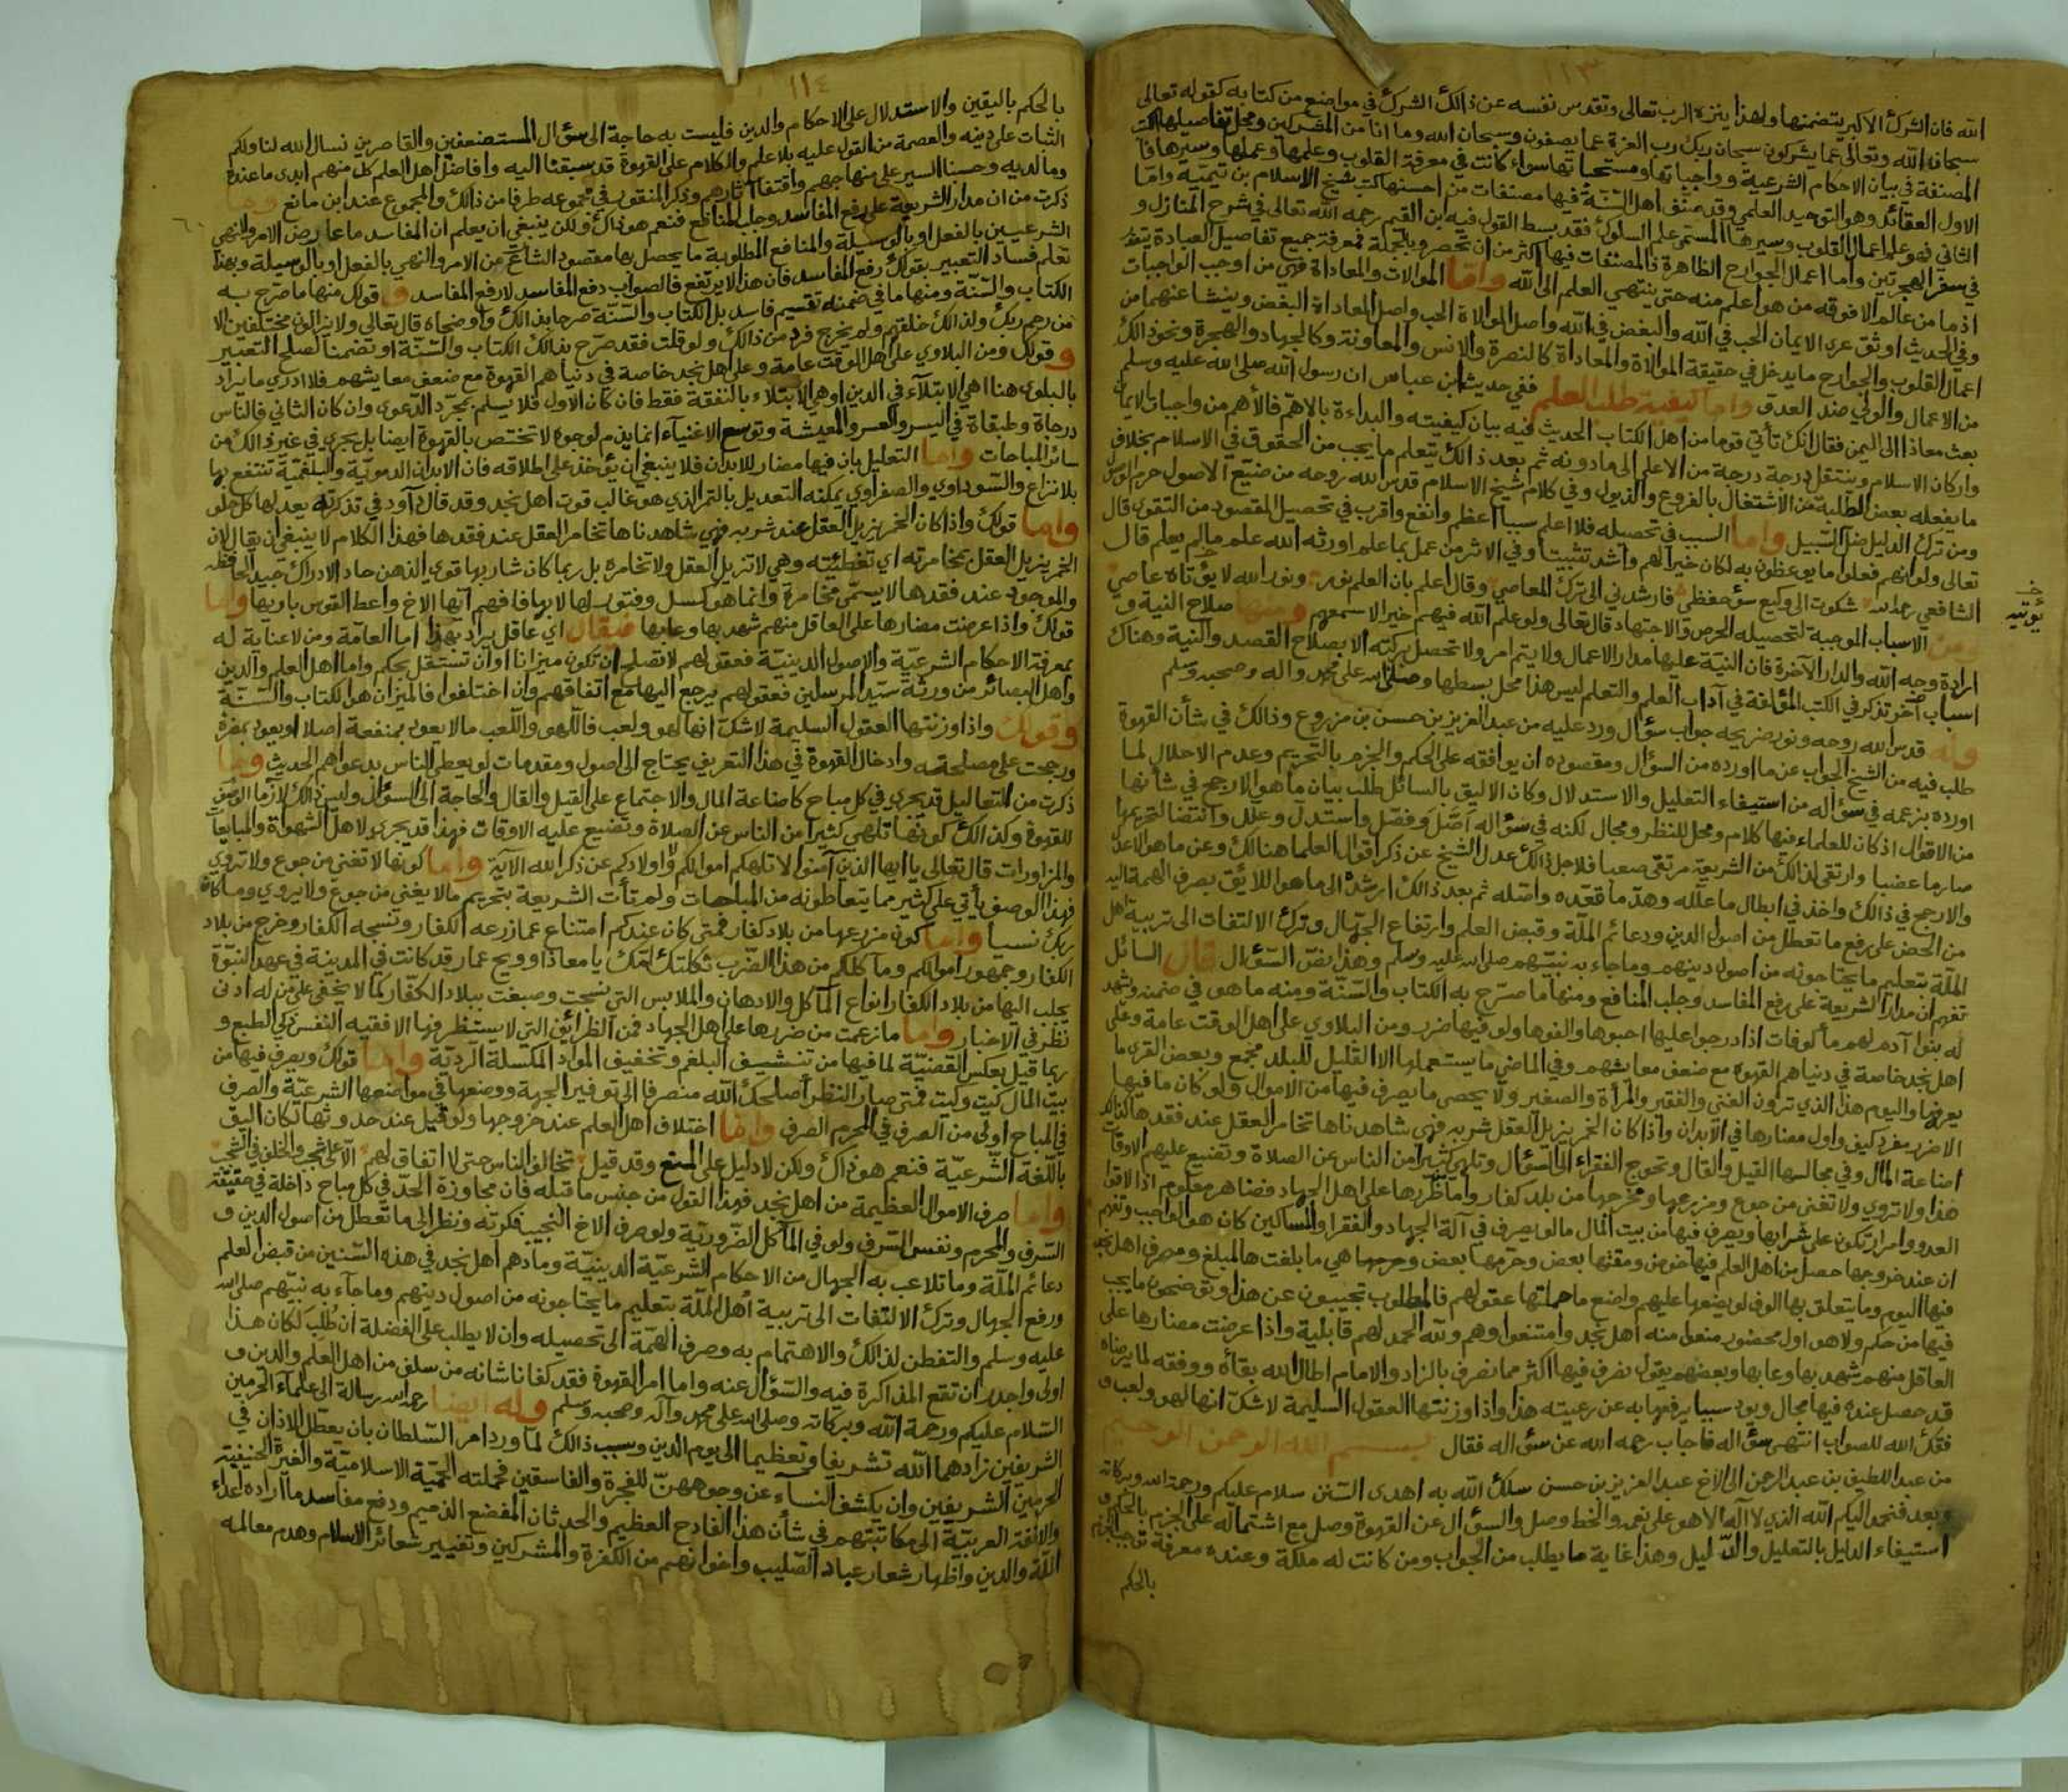 ١١٣
الله فان الشرك الاكبر يتضمنها ولهذا ينزه الرب تعالى وتقدس نفسه عن ذالك الشرك في مواضع من كتابه كقوله تعالى
سبحان الله وتعالى عما يشركون سبحان ربك رب العزة عما يصفون وسبحان الله وما انا من المشركين ومحل تفاصيلها الكتب
المصنفة في بيان الاحكام الشرعية وواجباتها ومستحباتها سواء كانت في معرفة القلوب وعلمها وعملها وسيرها فا
الاول العقائد وهو التوحيد العلمي وقد صنف اهل السنة فيها مصنفات من احسنها كتب شيخ الاسلام بن تيمية واما
الثاني فهو علم اعمال القلوب وسيرها المسمى علم السلوك فقد بسط القول فيه ابن القيم رحمه الله تعالى في شرح المنازل و
في سفر الهجرتين واما اعمال الجوارح الظاهرة فالمصنفات فيها اكثر من ان تحصر وبالجملة فمعرفة جميع تفاصيل العبادة يتعذر
اذ ما من عالم الا فوقه من هو اعلم منه حتى ينتهي العلم الى الله واما الموالات والمعاداة فهي من اوجب الواجبات
وفي الحديث اوثق عرى الايمان الحب في الله والبغض في الله واصل الموالاة الحب واصل المعاداة البغض وينشا عنهما من
اعمال القلوب والجوارح ما يدخل في حقيقة الموالاة والمعاداة كالنصرة والانس والمعاونة وكالجهاد والهجرة ونحو ذالك
من الاعمال والولي ضد العدو واما كيفية طلب العلم ففي حديث ابن عباس ان رسول الله صلى الله عليه وسلم
بعث معاذا الى اليمن فقال انك تأتي قوما من اهل الكتاب الحديث فيه بيان كيفيته والبداءة بالاهم فالأهم من واجبات الايمان
واركان الاسلام وينتقل درجة درجة من الاعلى الى ما دونه ثم بعد ذالك يتعلم ما يجب من الحقوق في الاسلام بخلاف
ما يفعله بعض الطلبة من الاشتغال بالفروع والذيول وفي كلام شيخ الاسلام قدس الله روحه من ضيّع الاصول حرم الوصول
ومن ترك الدليل ضل السبيل واما السبب في تحصيله فلا اعلم سببا اعظم وانفع واقرب في تحصيل المقصود من التقوى قال
تعالى ولو انهم فعلوا ما يوعظون به لكان خيرا لهم واشد تثبيتا وفي الاثر من عمل بما علم اورثه الله علم ما لم يعلم قال
الشافعي رحمه الله شكوت الى وكيع سوء حفظي فارشدني الى ترك المعاصي وقال اعلم بان العلم نور ونور الله لا يؤتاه عاصي
يؤتيه
ومن الاسباب الموجبة لتحصيله الحرص والاجتهاد قال تعالى ولو علم الله فيهم خيرا لاسمعهم ومنها صلاح النية و
ارادة وجه الله والدار الآخرة فان النية عليها مدار الاعمال ولا يتم امر ولا تحصل بركته الا بصلاح القصد والنية وهناك
اسباب أخر تذكر في الكتب المؤلفة في آداب العلم والتعلم ليس هذا محل بسطها وصلى الله على محمد واله وصحبه وسلم
وله قدس الله روحه ونور ضريحه جواب سؤال ورد عليه من عبد العزيز بن حسن بن مزروع وذالك في شأن القهوة
طلب فيه من الشيخ الجواب عن ما اورده من السؤال ومقصوده ان يوافقه على الحكم والجزم بالتحريم وعدم الاحلال لما
اورده بزعمه في سؤاله من استيفاء التعليل والاستدلال وكان الاليق بالسائل طلب بيان ما هو الارجح في شأنها
من الاقوال اذ كان للعلماء فيها كلام ومحل للنظر ومجال لكنه في سؤاله اصّل وفصّل واستدل وعلل وانتضا لتحريمها
صارما عضبا وارتقى لذالك من الشريعة مرتقى صعبا فلاجل ذالك عدل الشيخ عن ذكر اقوال العلما هنالك وعن ما هو الاعدل
والارجح في ذالك واخذ في ابطال ما علله وهد ما قعده واصله ثم بعد ذالك ارشده الى ما هو اللائق بصرف الهمة اليه
من الحض على رفع ما تعطل من اصول الدين ودعائم الملة وقبض العلم وارتفاع الجهال وترك الالتفات الى تربية اهل
الملة بتعليم ما يحتاجونه من اصول دينهم وما جاء به نبيهم صلى الله عليه وسلم وهذا نص السؤال قال السائل
تفهم ان مدار الشريعة على رفع المفاسد وجلب المنافع ومنها ما صرّح به الكتاب والسنة ومنه ما هو في ضمنه وشهد
له بنوا آدم لهم مألوفات اذا درجوا عليها احبوها والفوها ولو فيها ضرر ومن البلاوي على اهل الوقت عامة وعلى
اهل نجد خاصة في دنياهم القهوة مع ضعف معايشهم وفي الماضي ما يستعملها الا القليل للبلد مجمع وبعض القرى ما
يعرفها واليوم هذا الذي ترون الغني والفقير والمرأة والصغير ولا يحصى ما يصرف فيها من الاموال ولو كان ما فيها
الا ضرر مفرد كيف واول مضارها في الابدان واذا كان الخمر يزيل العقل شربه فهي شاهدناها تخامر العقل عند فقدها الثاني
اضاعة المال وفي مجالسها القيل والقال وتحوج الفقراء الى السؤال وتلهي كثيرا من الناس عن الصلاة وتضيع عليهم الاوقات
هذا ولا تروي ولا تغني من جوع ومزرعها ومخرجها من بلد كفار واما ضررها على اهل الجهاد فضاهر معلوم اذا لاقوا
العدو وامرار تكون على شرابها ويصرف فيها من بيت المال ما لو يصرف في آلة الجهاد والفقرا والمساكين كان هو الواجب وتفهم
ان عند خروجها حصل من اهل العلم فيها خوض ومقتها بعض وحرمها بعض وخرجها هي ما بلغت هالمبلغ ومصرف اهل نجد
فيها اليوم وما يتعلق بها الوف لو يضعها عليهم واضع ما حملتها عقولهم فالمطلوب تجيبون عن هذا وتوضحون ما يجب
فيها من حكم ولا هو اول محضور منعوا منه اهل نجد وامتنعوا وهم ولله الحمد لهم قابلية واذا عرضت مضارها على
العاقل منهم شهد بها وعابها وبعضهم يقول نصرف فيها اكثر مما نصرف بالزاد والامام اطال الله بقاه ووفقه لما يرضاه
قد حصل عنده فيها مجال ويود سببا يرفعها به عن رعيته هذا واذا وزنتها العقول السليمة لاشك انها لهو ولعب و
فقك الله للصواب انتهى سؤاله فاجاب رحمه الله عن سؤاله فقال بسم الله الرحمن الرحيم
من عبد اللطيف بن عبد الرحمن الى الاخ عبد العزيز بن حسن سلك الله به اهدى السنن سلام عليكم ورحمة الله وبركاته
وبعد فنحمد اليكم الله الذي لا اله الا هو على نعمه والخط وصل والسؤال عن القهوة وصل مع اشتماله على الجزم بالحكم و
استيفاء الدليل بالتعليل والدليل وهذا غاية ما يطلب من الجواب ومن كانت له ملكة وعنده معرفة توجب الجزم
بالحكم
١١٤
بالحكم باليقين والاستدلال على الاحكام والدين فليست به حاجة الى سؤال المستضعفين والقاصرين نسال الله لنا ولكم
الثبات على دينه والعصمة من القول عليه بلا علم والكلام على القهوة قد سبقنا اليه وافاضل اهل العلم كل منهم ابدى ما عنده
وما لديه وحسنا السير على منهاجهم واقتفا آثارهم وذكر المنقور في مجموعه طرفا من ذالك والمجموع عند ابن مانع وما
ذكرت من ان مدار الشريعة على رفع المفاسد وجلب المنافع فنعم هو ذاك ولكن ينبغي ان يعلم ان المفاسد ما عارض الامر والنهي
الشرعيين بالفعل او بالوسيلة والمنافع المطلوبة ما يحصل بها مقصود الشارع من الامر والنهي بالفعل او بالوسيلة وبهذا
تعلم فساد التعبير بقولك رفع المفاسد فان هذا لا يرتفع فالصواب دفع المفاسد لا رفع المفاسد وقولك منها ما صرّح به
الكتاب والسنة ومنها ما في ضمنه تقسيم فاسد بل الكتاب والسنة صرحا بذالك واوضحاه قال تعالى ولا يزالون مختلفين الا
من رحم ربك ولذالك خلقهم ولم يخرج فرد من ذالك ولو قلت فقد صرّح بذالك الكتاب والسنة او تضمنا لصلح التعبير
وقولك ومن البلاوي على اهل الوقت عامة وعلى اهل نجد خاصة في دنياهم القهوة مع ضعف معايشهم فلا ادري ما يراد
بالبلوى هنا اهي الابتلاء في الدين او هي الابتلاء بالنفقة فقط فان كان الاول فلا يسلم بمجرد الدعوى وان كان الثاني فالناس
درجاة وطبقاة في اليسر والعسر والمعيشة وتوسع الاغنياء انما يذم لوجوه لا تختص بالقهوة ايضا بل يجري في غير ذالك من
سائر المباحات واما التعليل بان فيها مضار للابدان فلا ينبغي ان يؤخذ على اطلاقه فان الابدان الدموية والبلغمية تنتفع بها
بلا نزاع والسوداوي والصفراوي يمكنه التعديل بالتمر الذي هو غالب قوت اهل نجد وقد قال داود في تذكرته يعدلها كل حلو
واما قولك واذا كان الخمر يزيل العقل عند شربه فهي شاهدناها تخامر العقل عند فقدها فهذا الكلام لا ينبغي ان يقال لان
الخمر يزيل العقل بمخامرته اي تغطيئته وهي لا تزيل العقل ولا تخامره بل ربما كان شاربها قوي الذهن حاد الادراك جيد الحافظه
والموجود عند فقدها لا يسمى مخامرة وانما هو كسل وفتور لها لا بها فافهم ايها الاخ واعط القوس باريها واما
قولك واذا عرضت مضارها على العاقل منهم شهد بها وعابها فيقال اي عاقل يراد بهذا اما العامة ومن لا عناية له
بمعرفة الاحكام الشرعية والاصول الدينية فعقولهم لا تصلح ان تكون ميزانا او ان تستقل بحكم واما اهل العلم والدين
واهل البصائر من ورثة سيد المرسلين فعقولهم يرجع اليها مع اتفاقهم وان اختلفوا فالميزان هو الكتاب والسنة
وقولك واذا وزنتها العقول السليمة لاشك انها لهو ولعب فاللهو واللعب ما لا يعود بمنفعة اصلا او يعود بمضرة
ورجحت على مصلحته وادخال القهوة في هذا التعريف يحتاج الى اصول ومقدمات لو يعطى الناس بدعواهم الحديث وما
ذكرت من التعاليل قد يجري في كل مباح كاضاعة المال والاجتماع على القيل والقال والحاجة الى السؤال وليس ذالك لازما
للقهوة وكذالك كونها تلهي كثيرا من الناس عن الصلاة وتضيع عليه الاوقات فهذا قد يجري لاهل الشهوة والمبايعات
والمزاورات قال تعالى يا ايها الذين آمنوا لا تلهكم اموالكم ولا اولادكم عن ذكر الله الآية واما كونها لا تغني من جوع ولا تروي
فهذا الوصف يأتي على كثير مما يتعاطونه من المباحات ولم تأت الشريعة بتحريم ما لا يغني من جوع ولا يروي وما كان
ربك نسيا واما كون مزرعها من بلاد كفار فمتى كان عندكم امتناع عما زرعه الكفار وتنسجه الكفار وخرج من بلاد
الكفار وجمهور اموالكم ومآكلكم من هذا الضرب ثكلتك امّك يا معاذ او ويح عمار قد كانت في المدينة في عهد النبوّة
يجلب اليها من بلاد الكفار انواع المآكل والادهان والملابس التي نسجت وصبغت ببلاد الكفار كما لا يخفى على من له ادنى
نظر في الاخبار واما ما زعمت من ضررها على اهل الجهاد فمن الظرائف التي لا يستظرفها الا فقيه النفس ذكي الطبع و
ربما قيل بعكس القضيّة لما فيها من تنشيف البلغم وتخفيف المواد المكسلة الرديّة واما قولك ويصرف فيها من
بيت المال كيت وكيت فمتى صار النظر اصلحك الله منصرفا الى توفير الجهة ووضعها في مواضعها الشرعية والصرف
في المباح اولى من الصرف في المحرم الصرف واما اختلاف اهل العلم عند خروجها ولو قيل عند حدوثها لكان اليق
باللغة الشرعيّة فنعم هو ذاك ولكن لا دليل على المنع وقد قيل تخالف الناس حتى لا اتفاق لهم الا على شجب والخلف في الشجب
واما صرف الاموال العظيمة من اهل نجد فهذا القول من جنس ما قبله فان مجاوزة الحدّ في كل مباح داخلة في حقيقة
السرف والمحرم ونفس السرف ولو في المآكل الضرورية ولو صرف الاخ النجيب فكرته ونظر الى ما تعطل من اصول الدين و
دعائم الملّة وما تلاعب به الجهال من الاحكام الشرعيّة الدينيّة وما دهم اهل نجد في هذه السنين من قبض العلم
ورفع الجهال وترك الالتفات الى تربية اهل الملّة بتعليم ما يحتاجونه من اصول دينهم وما جاء به نبيهم صلى الله
عليه وسلم والتفطن لذالك والاهتمام به وصرف الهمّة الى تحصيله وان لا يطلب على الفضلة ان طُلب لكان هذا
اولى واجدر ان تقع المذاكرة فيه والسؤال عنه واما امر القهوة فقد كفانا شانه من سلف من اهل العلم والدين و
السلام عليكم ورحمة الله وبركاته وصلى الله على محمد وآله وصحبه وسلم وله ايضا رحمه الله رسالة الى علماء الحرمين
الشريفين زادهما الله تشريفا وتعظيما الى يوم الدين وسبب ذالك لما ورد امر السلطان بان يعطل الاذان في
الحرمين الشريفين وان يكشف النساء عن وجوههنّ للفجرة والفاسقين فحملته الحميّة الاسلاميّة والغيرة الحنيفية
والانفة العربيّة الى مكاتبتهم في شأن هذا الفادح العظيم والحدثان المفضع الذميم ودفع مفاسد ما اراده اعداء
الملّة والدين واظهار شعار عباد الصليب واخوانهم من الكفرة والمشركين وتغيير شعائر الاسلام وهدم معالمه